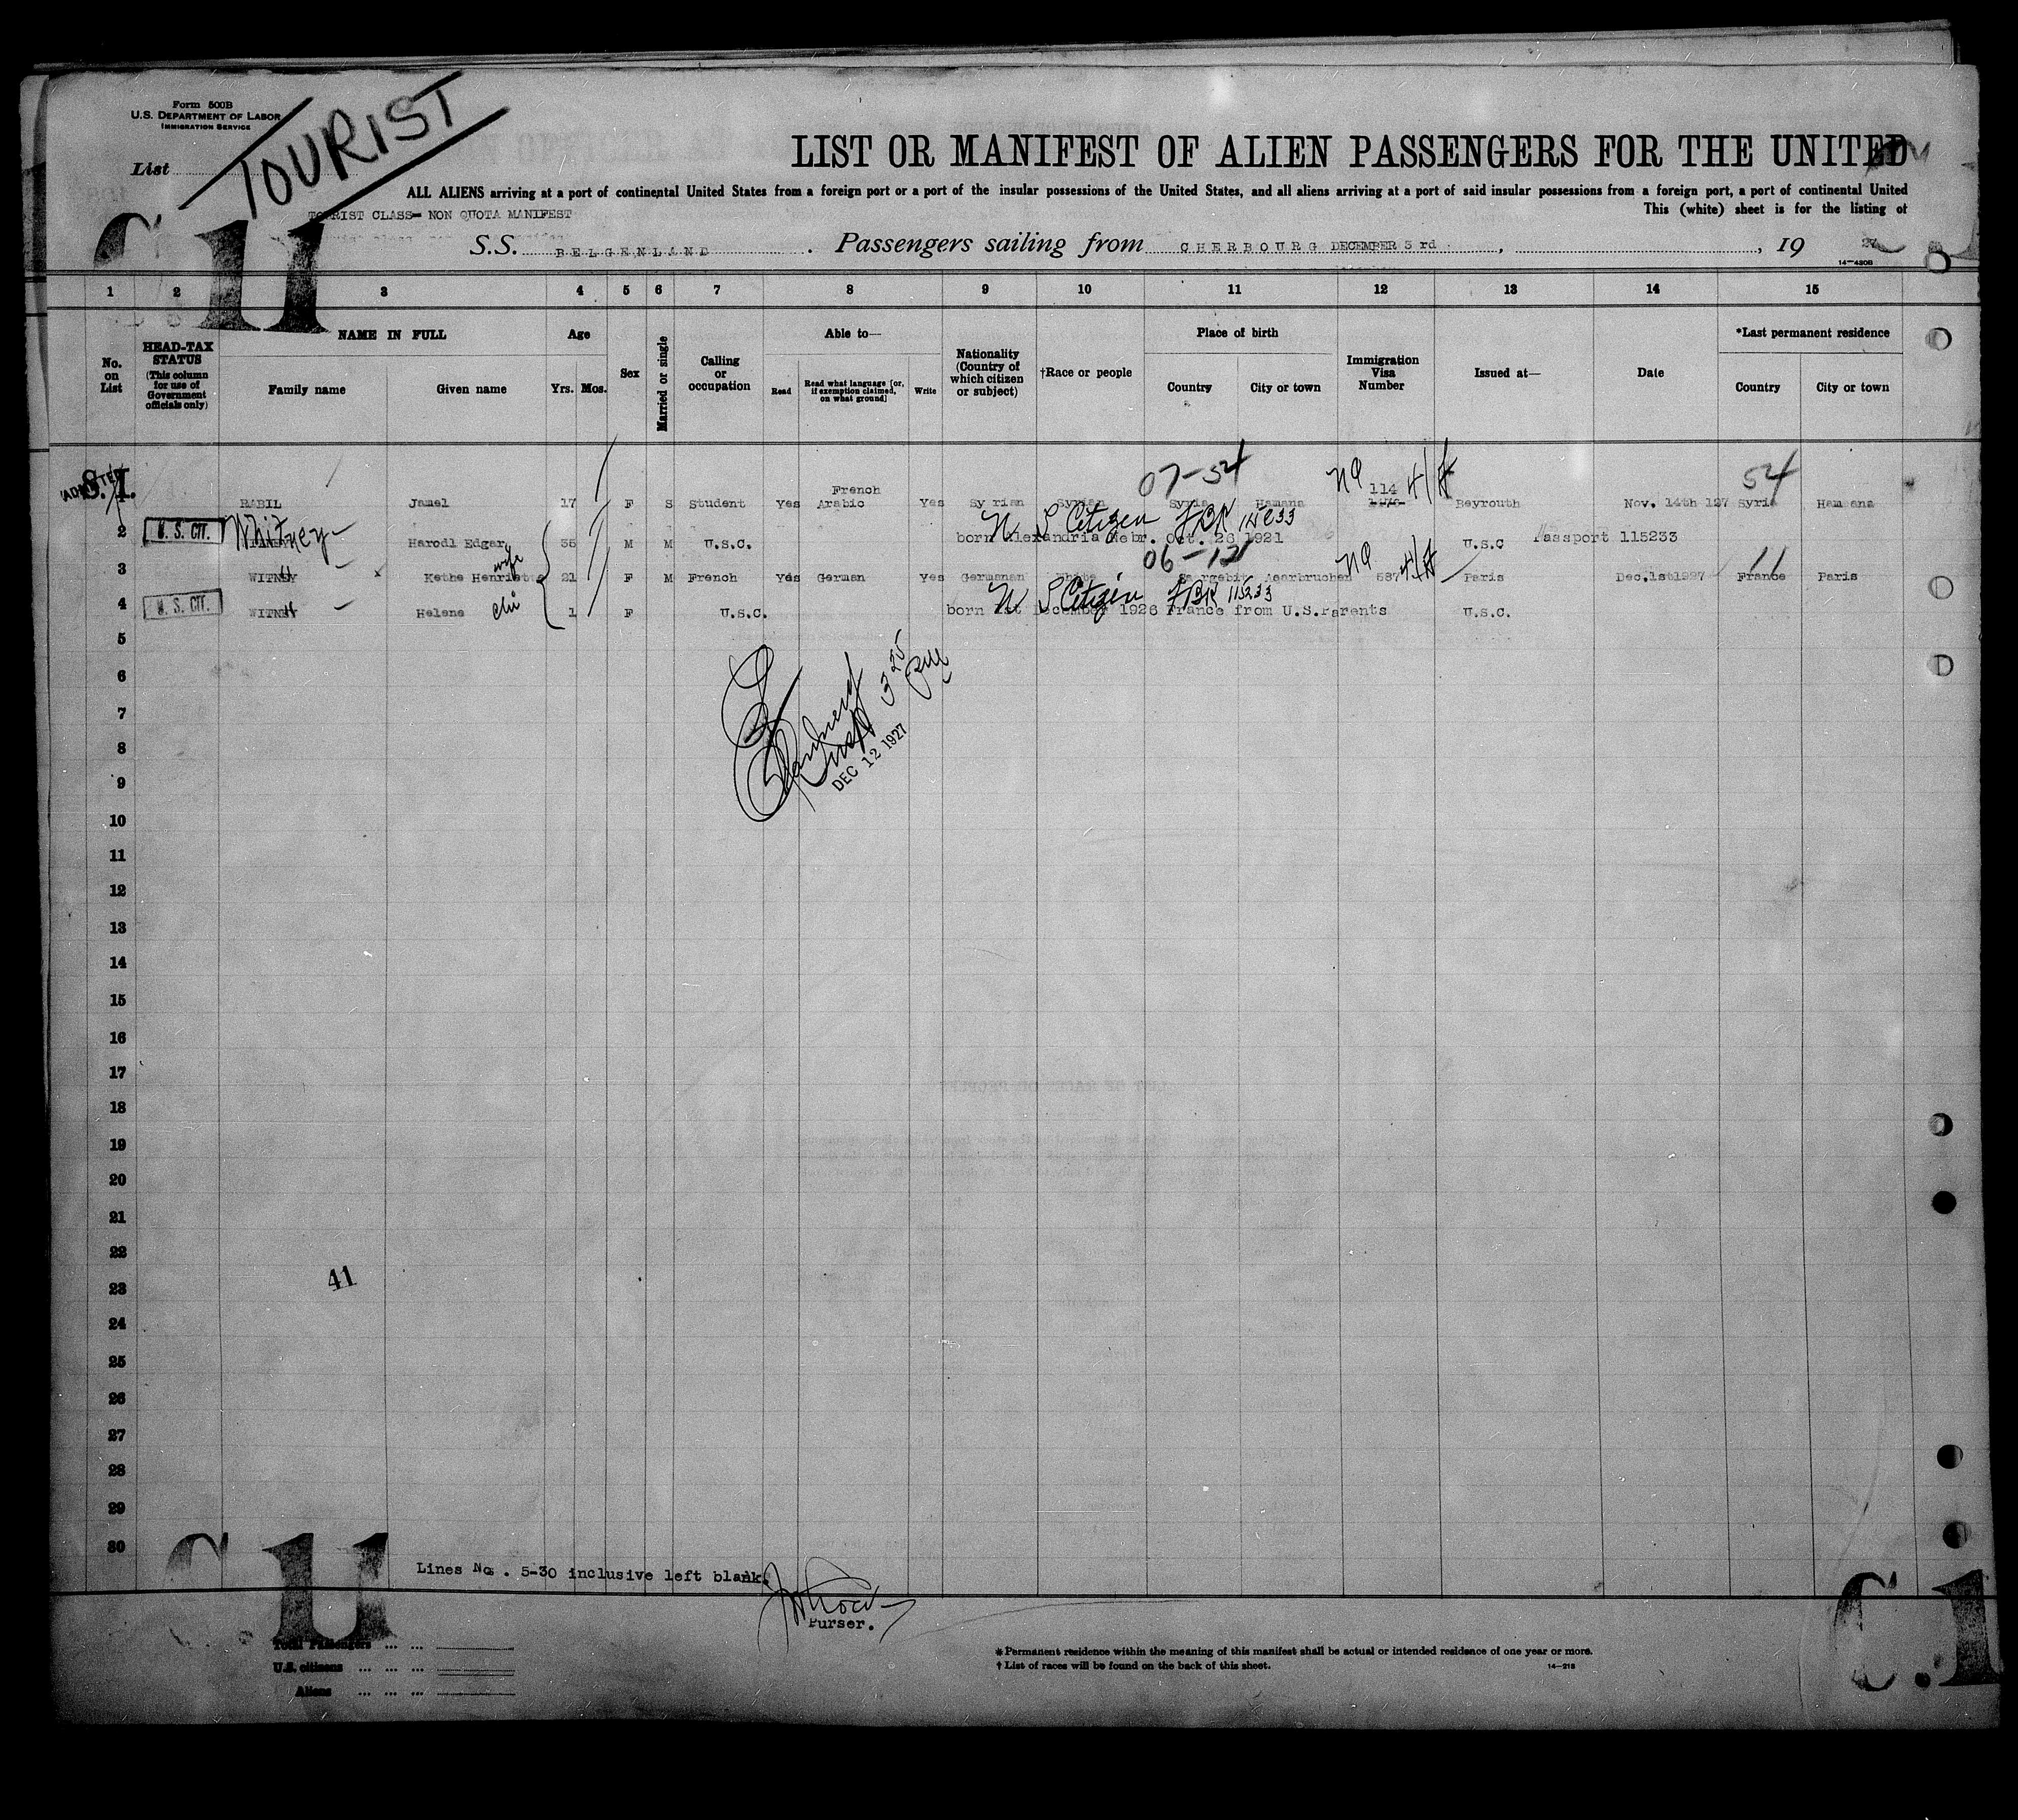 Form 500B
U.S. DEPARTMENT OF LABOR
IMMIGRATION SERVICE
TOURIST
List
LIST OR MANIFEST OF ALIEN PASSENGERS FOR THE UNITED
ALL ALIENS arriving at a port of continental United States from a foreign port or a port of the insular possessions of the United States, and all aliens arriving at a port of said insular possessions from a foreign port, a port of continental United
TOURIST CLASS= NON QUOTA MANIFEST
This (white) sheet is for the listing of
S.S. BELGENLAND. Passengers sailing from CHERBOURG DECEMBER 3 rd, , 19 27
14-430B
1 2 3 4 5 6 7 8 9 10 11 12 13 14 15
No. on List
HEAD-TAX STATUS (This column for use of Government officials only)
NAME IN FULL
Family name Given name
Age
Yrs. Mos.
Sex
Married or single
Calling or occupation
Able to—
Read Read what language [or, if exemption claimed, on what ground] Write
Nationality (Country of which citizen or subject)
†Race or people
Place of birth
Country City or town
Immigration Visa Number
Issued at—
Date
*Last permanent residence
Country City or town
ADMITTED S.I. 07-54 NQ 4/A 54
French 114
RABIL Jamel 17 F S Student Yes Arabic Yes Sy rian Syrian Syria Hamana Beyrouth Nov. 14th 127 Syria Hamana
U S Citizen 115233
2 U. S. CIT. Whitney Harodl Edgar 35 M M U.S.C. born Alexandria Nebr. Oct. 26 1921 U.S.C Passport 115233
wife 06-12 NQ 4/A 11
3 WITNEY Kethe Henriet 21 F M French Yes German Yes Germanan White Saargebit Aearbruchen 587 Paris Dec.1st1927 France Paris
U S Citizen 115233
4 U. S. CIT. WITNEY Helene 1 F U.S.C. born 1st December 1926 France from U.S.Parents U.S.C.
5
6
7
8
9
10
11
12
13
14
15
16
17
18
19
20
21
22
23
24
25
26
27
28
29
30
3 25
DEC 12 1927
41
Lines Nos. 5-30 inclusive left blank.
Purser.
Total Passengers ... ...
U.S. citizens ... ... ...
Aliens ... ... ...
* Permanent residence within the meaning of this manifest shall be actual or intended residence of one year or more.
† List of races will be found on the back of this sheet.
14-218